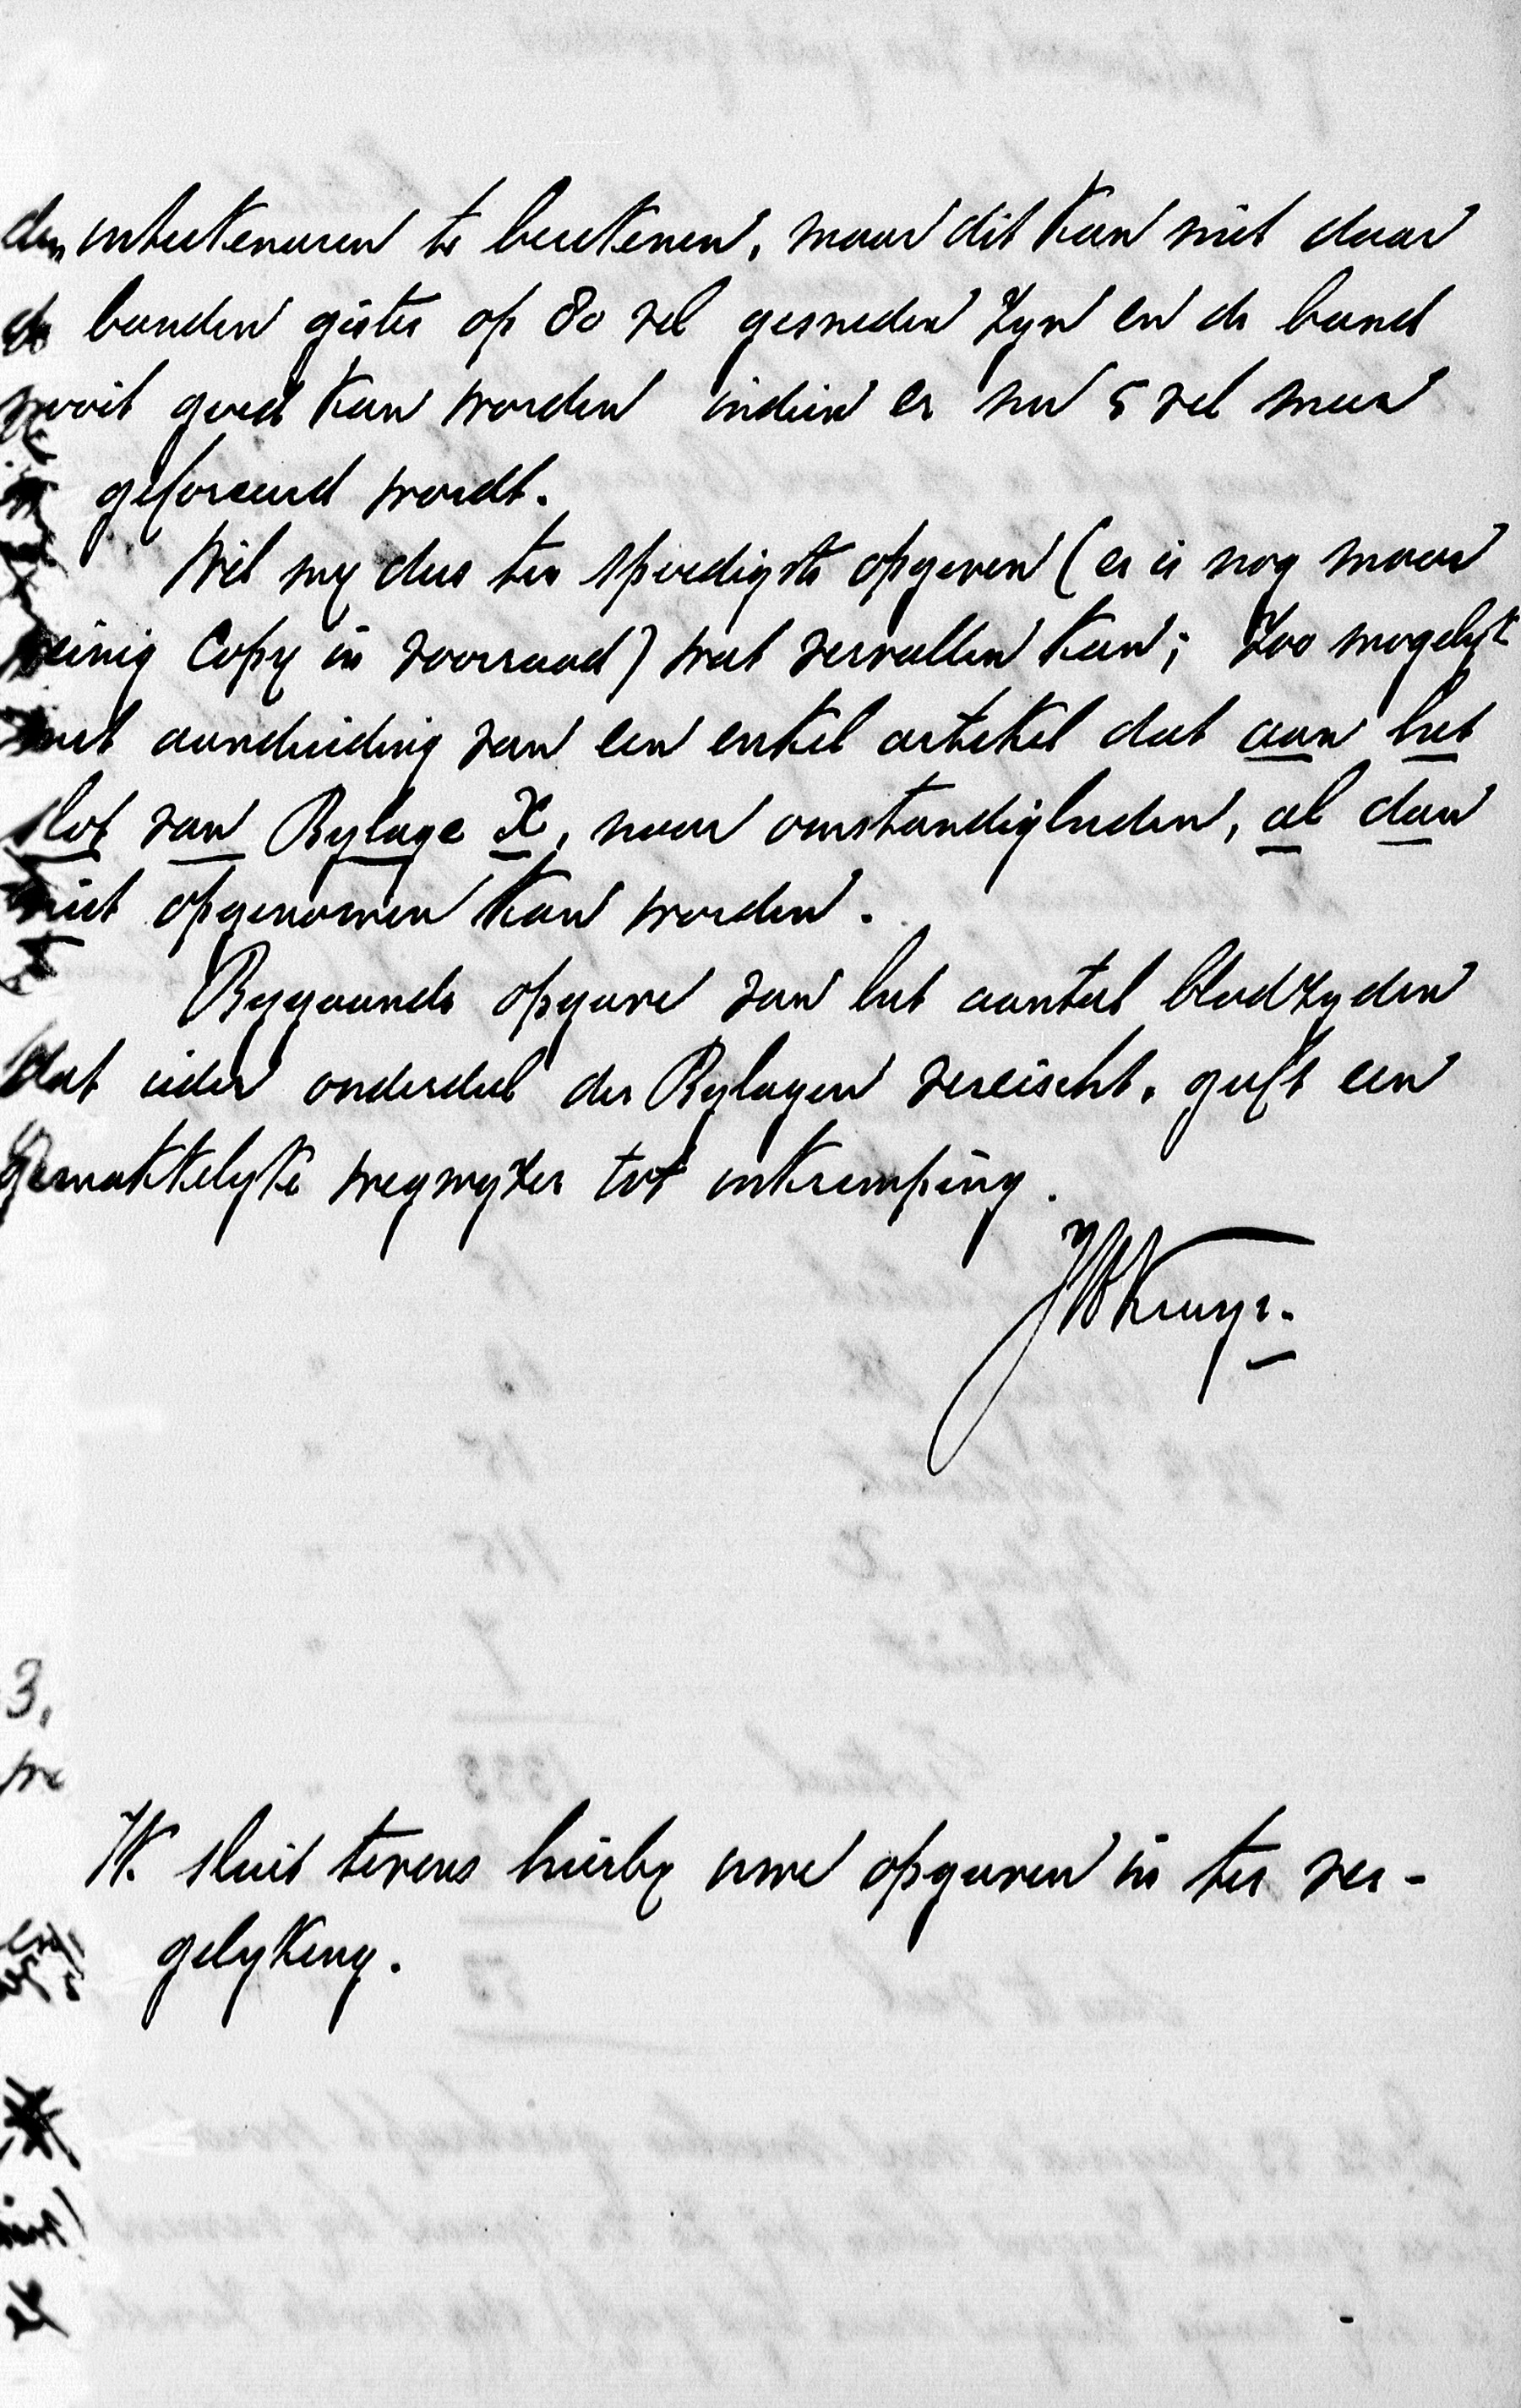 den inteekenaren te berekenen, maar dit kan niet daar
de banden gister op 80 vel gesneden zyn en de band
nooit goed kan worden indien er nu 5 vel meer
geforceerd wordt.
Wil my dus ten spoedigste opgeven (er is nog maar
weinig Copy in voorraad) wat vervallen kan; zoo mogelyk
met aanduiding van een enkel artikel dat aan het
slot van Bylage X, naar omstandigheden, al dan
niet opgenomen kan worden.
Bygaande opgave van het aantal bladzyden
dat ieder onderdeel der Bylagen vereischt, geeft een
gemakkelyke wegwyzer tot inkrimping.
JWKruyt.
Ik sluit tevens hierby uwe opgaven in ter ver-
gelyking.